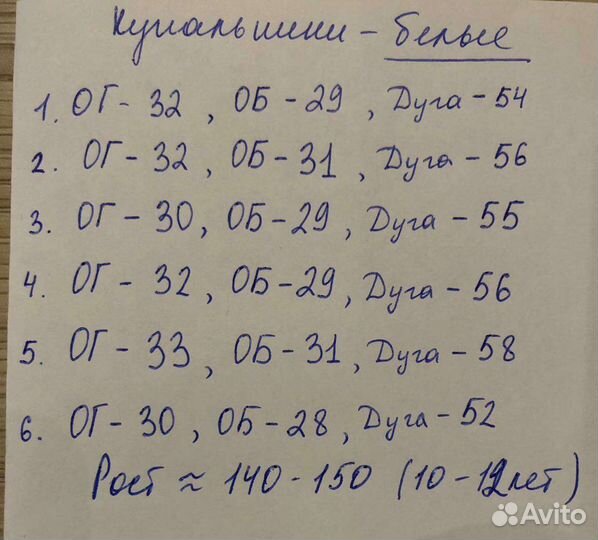 Купальники - белые
1. ОГ - 32, ОБ - 29, Дуга - 54
2. ОГ - 32, ОБ - 31, Дуга - 56
3. ОГ - 30, ОБ - 29, Дуга - 55
4. ОГ - 32, ОБ - 29, Дуга - 56
5. ОГ - 33, ОБ - 31, Дуга - 58
6. ОГ - 30, ОБ - 28, Дуга - 52
Рост ≈ 140 - 150 (10 - 12 лет)
Avito